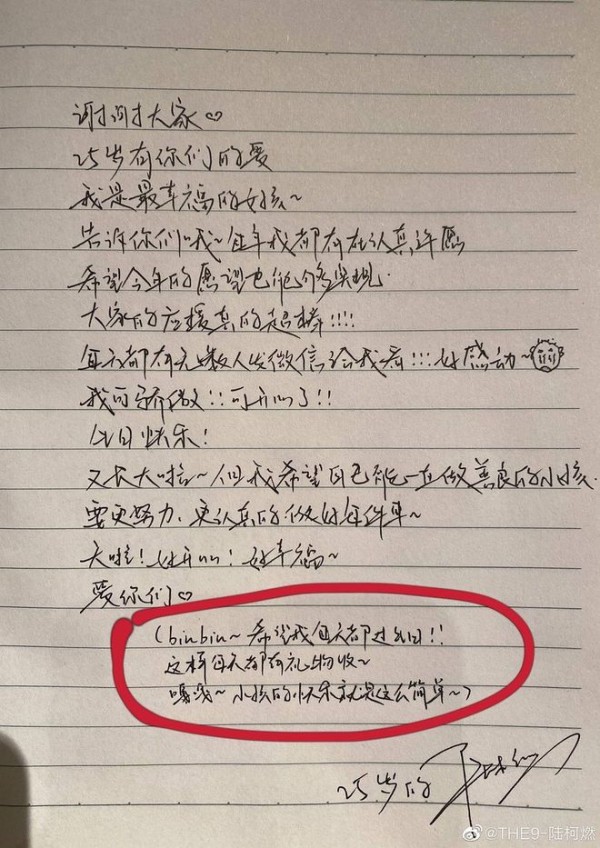 谢谢大家♡
25岁有你们的爱
我是最幸福的女孩~
告诉你们哦~每年我都有在认真许愿
希望今年的愿望也能够实现.
大家的应援真的超棒!!!!
每天都有无数人发微信给我看!!!好感动~
我可骄傲!!可开心了!!
生日快乐!
又长大啦~但我希望自己能一直做善良的小孩.
要更努力、更认真的做好每件事~
大啦!好开心!好幸福~
爱你们♡
(biubiu~希望我每天都过生日!!
这样每天都有礼物收~
嘻嘻~小孩的快乐就是这么简单~)
25岁的
@THE9-陆柯燃